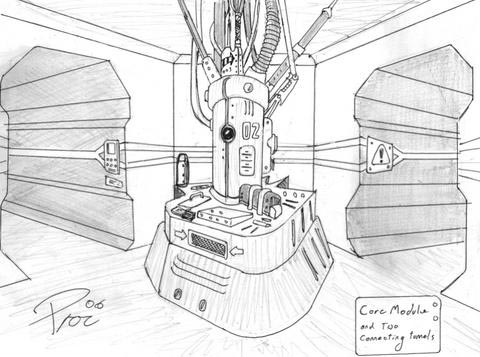 02
!
06
Core Module
and Two
Connecting tunnels